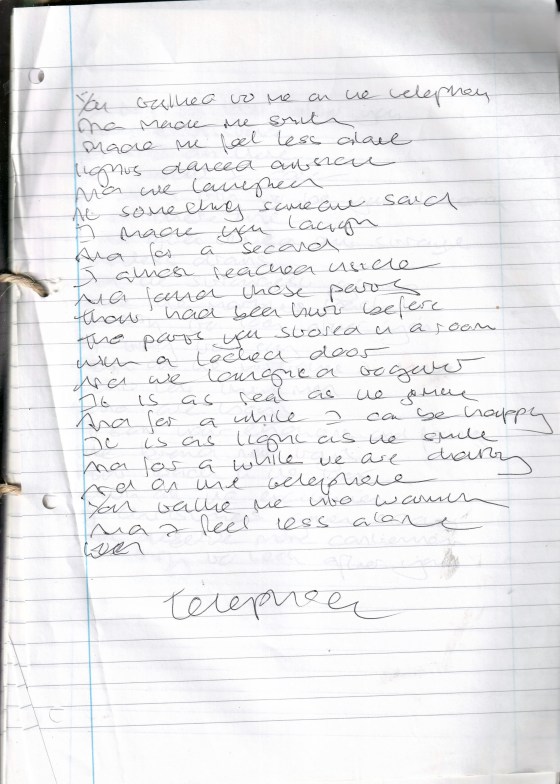 You talked to me on the telephone
And made me smile
Made me feel less alone
Lights danced outside
And we laughed
At something someone said
I made you laugh
And for a second
I almost reached inside
And found those parts
that had been hurt before
The parts you stored in a room
with a locked door
And we laughed together
It is as real as the
And for a while I can be happy
It is as light as the smile
And for a while we are
And on the telephone
You talk me into warmth
And I feel less alone
telephone